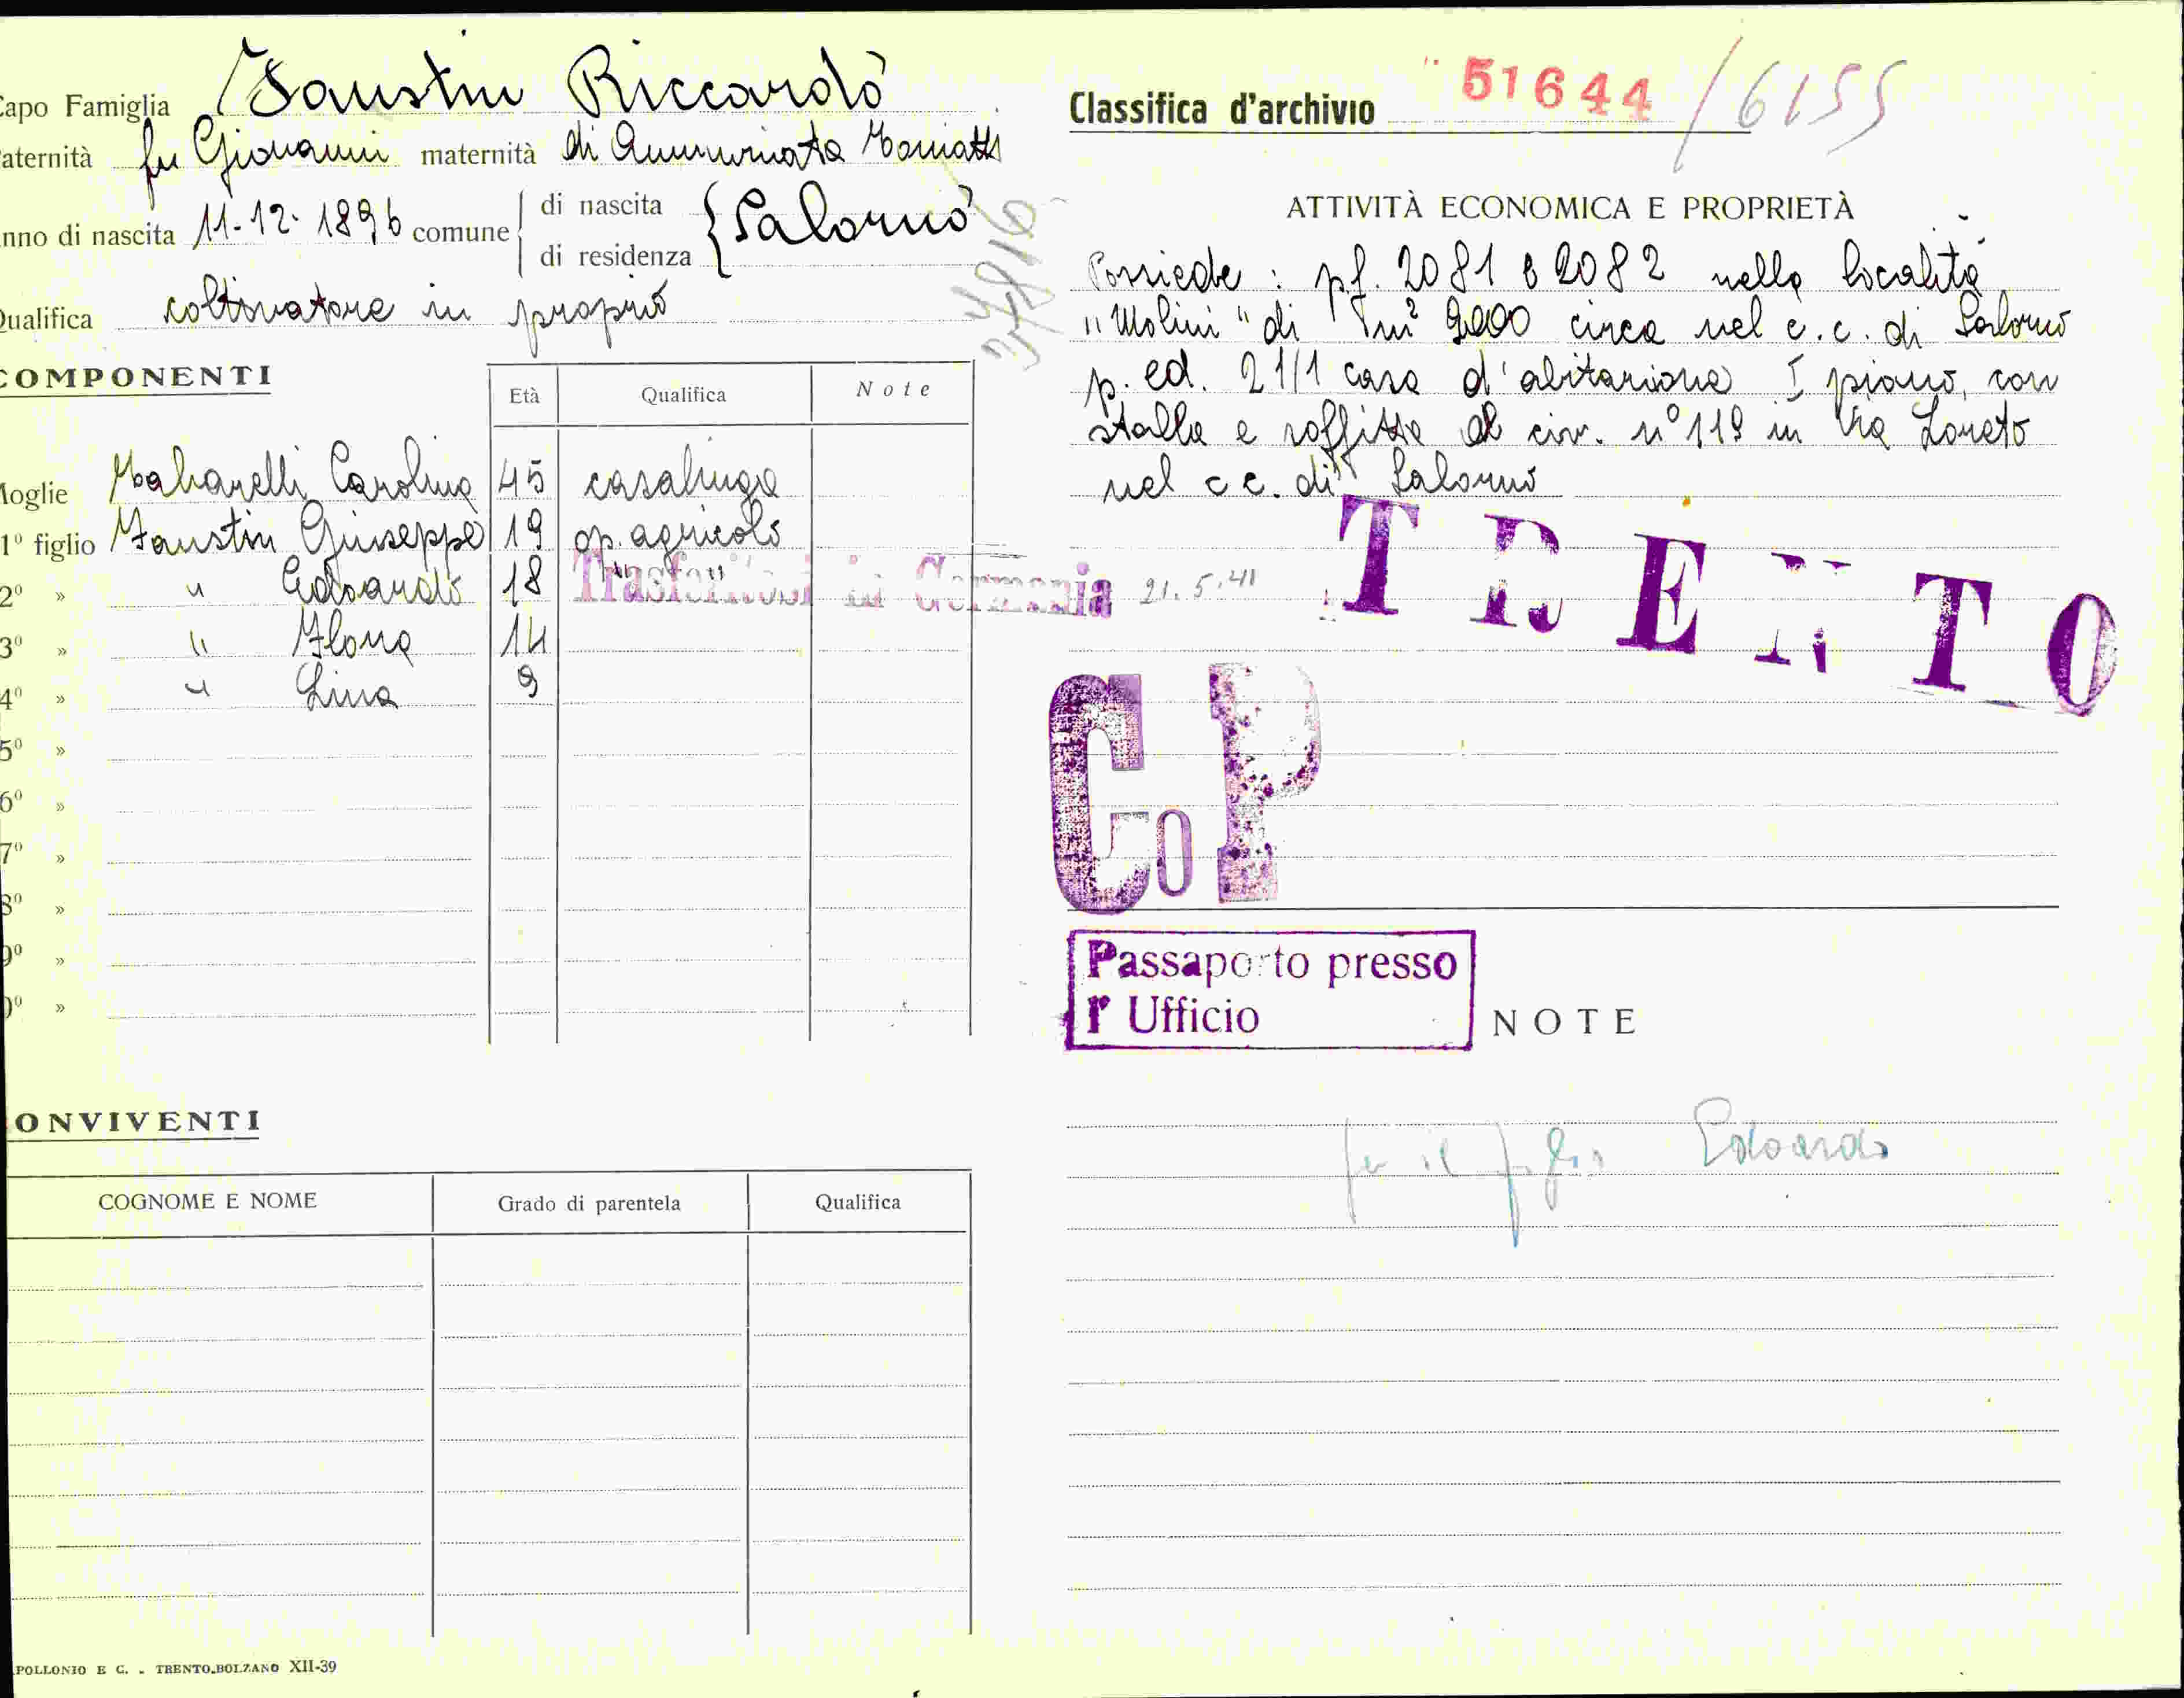 Capo Famiglia Faustin Riccardo
aternità fu Giovanni maternità di Annunziata Toniatti
nno di nascita 11-12-1896 comune di nascita di residenza Salorno
Qualifica coltivatore in proprio
COMPONENTI
Età Qualifica Note
Moglie Carolina 45 casalinga
1º figlio Faustin Giuseppe 19 op. agricolo
2º » " Edoardo 18 " " Trasferitosi in Germania 21.5.41
3º » " Ilona 14
4º » " Lina 9
5º »
6º »
7º »
8º »
9º »
0º »
ONVIVENTI
COGNOME E NOME Grado di parentela Qualifica
POLLONIO E C. - TRENTO-BOLZANO XII-39
Classifica d'archivio 51644 /6155
ATTIVITÀ ECONOMICA E PROPRIETÀ
Possiede : pf. 2081 e 2082 nella località
"Molini" di m² 9000 circa nel c.c. di Salorno
p. ed. 21/1 casa d'abitazione I piano, con
stalla e soffitta al civ. nº 119 in Via Loreto
nel c c. di Salorno
TRENTO
CoP
Passaporto presso
l' Ufficio
NOTE
per il figlio Edoardo